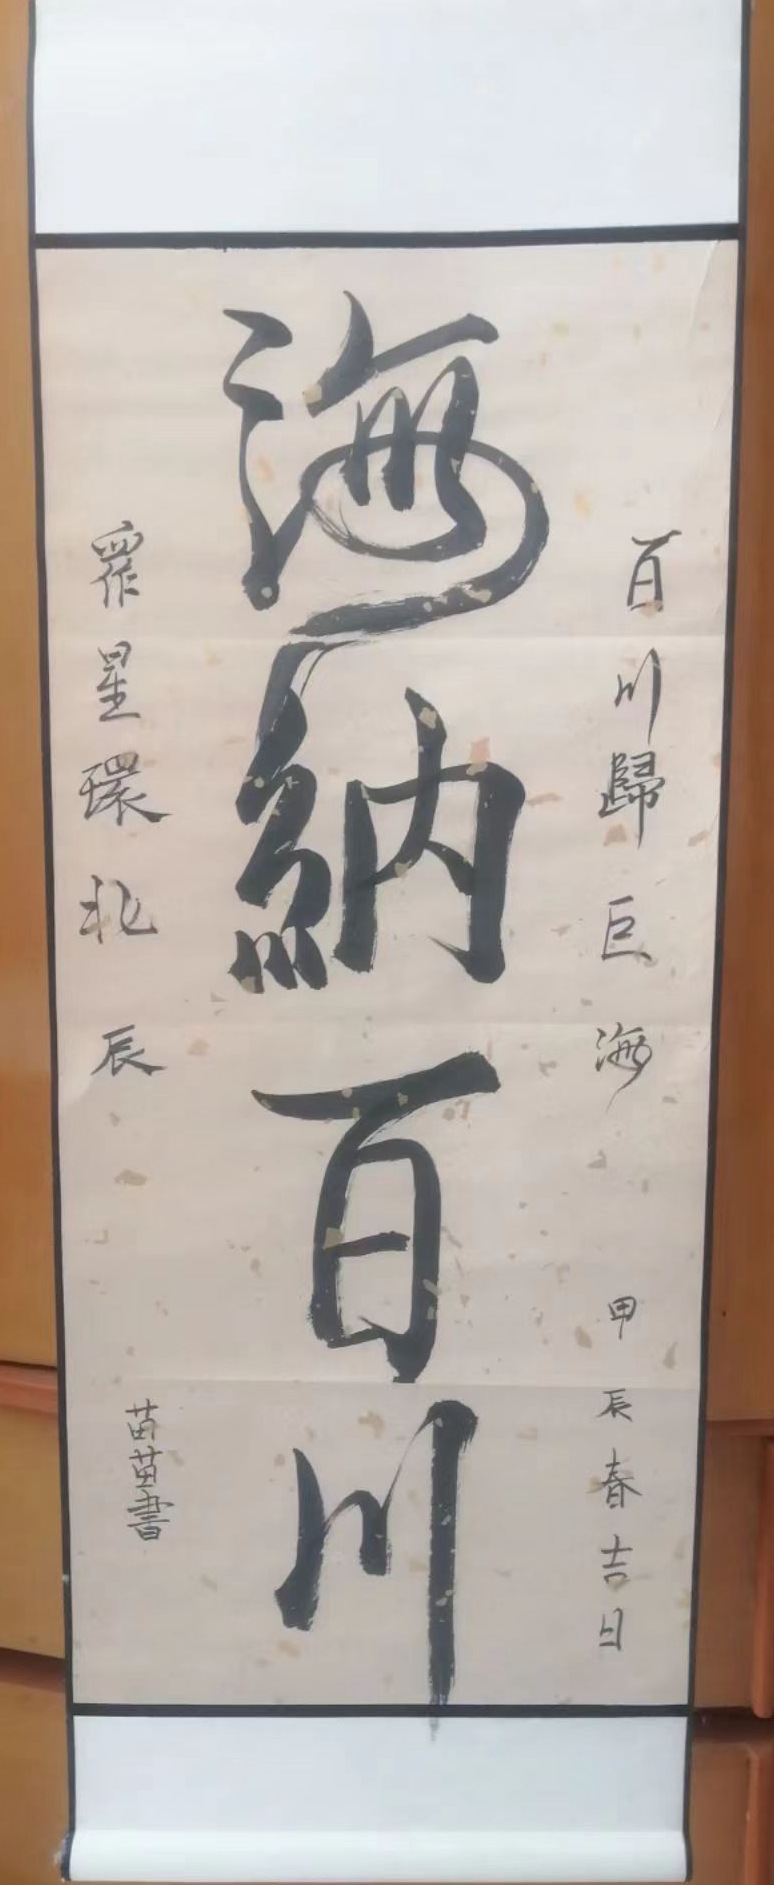 百川歸巨海
甲辰春吉日
海納百川
眾星環北辰
苗苗書